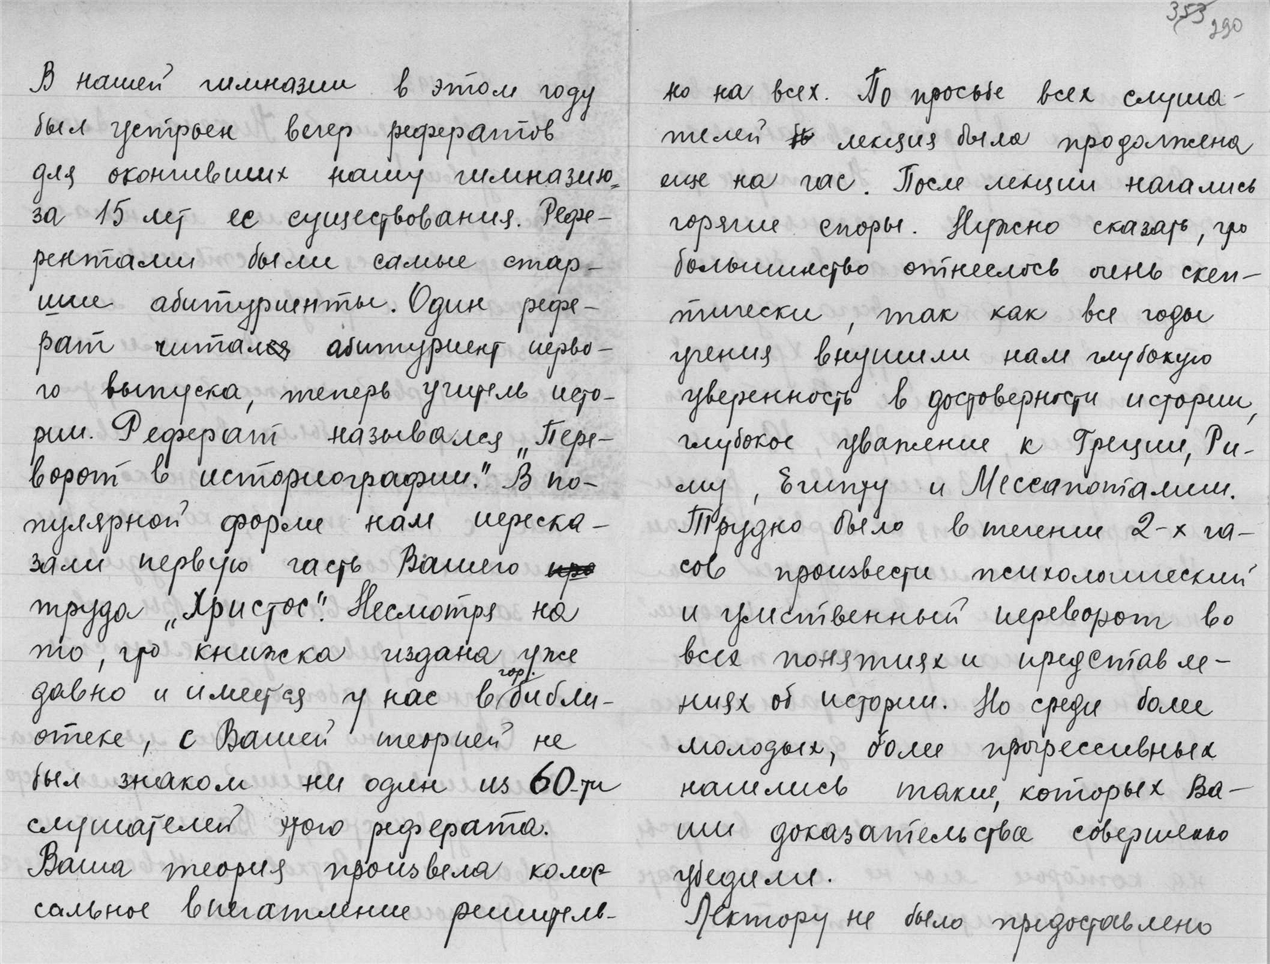 353 290
В нашей гимназии в этом году
был устроен вечер рефератов
для окончивших нашу гимназию
за 15 лет ее существования. Рефе-
рентами были самые стар-
шие абитуриенты. Один рефе-
рат читал абитуриент перво-
го выпуска, теперь учитель исто-
рии. Реферат назывался „Пере-
ворот в историографии". В по-
пулярной форме нам переска-
зали первую часть Вашего
труда „Христос". Несмотря на
то, что книжка издана уже
давно и имеется у нас в гор. библи-
отеке, с Вашей теорией не
был знаком ни один из 60-ти
слушателей этого реферата.
Ваша теория произвела колос-
сальное впечатление решитель-
но на всех. По просьбе всех слуша-
телей лекция была продолжена
еще на час. После лекции начались
горячие споры. Нужно сказать, что
большинство отнеслось очень скеп-
тически, так как все годы
учения внушили нам глубокую
уверенность в достоверности истории,
глубокое уважение к Греции, Ри-
му, Египту и Мессапотамии.
Трудно было в течении 2-х ча-
сов произвести психологический
и умственный переворот во
всех понятиях и представле-
ниях об истории. Но среди более
молодых, более прогрессивных
нашлись такие, которых Ва-
ши доказательства совершенно
убедили.
Лектору не было предоставлено